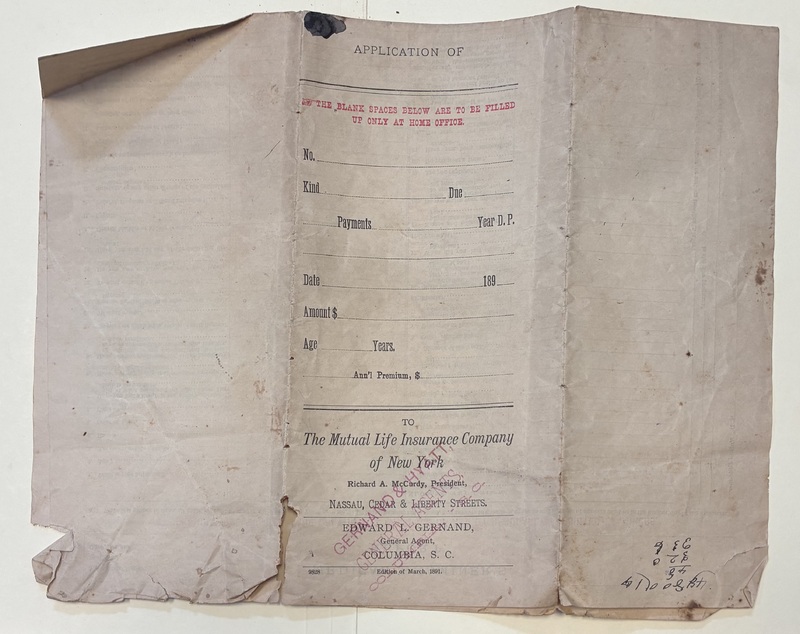 APPLICATION OF
THE BLANK SPACES BELOW ARE TO BE FILLED
UP ONLY AT HOME OFFICE.
No.
Kind Due
Payments Year D. P.
Date 189
Amount $
Age Years.
Ann'l Premium, $
TO
The Mutual Life Insurance Company
of New York
Richard A. McCurdy, President,
NASSAU, CEDAR & LIBERTY STREETS.
EDWARD L. GERNAND,
General Agent,
COLUMBIA, S. C.
Edition of March, 1891.
GERNAND & HYATT,
GENERAL AGENTS,